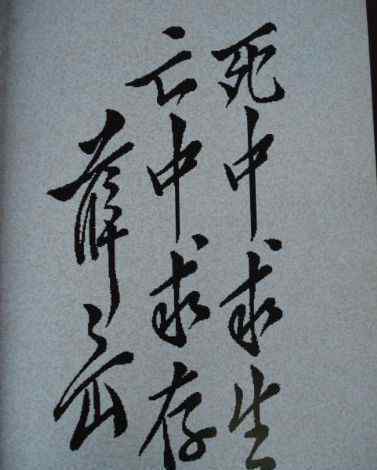 死中求生
亡中求存
薛岳